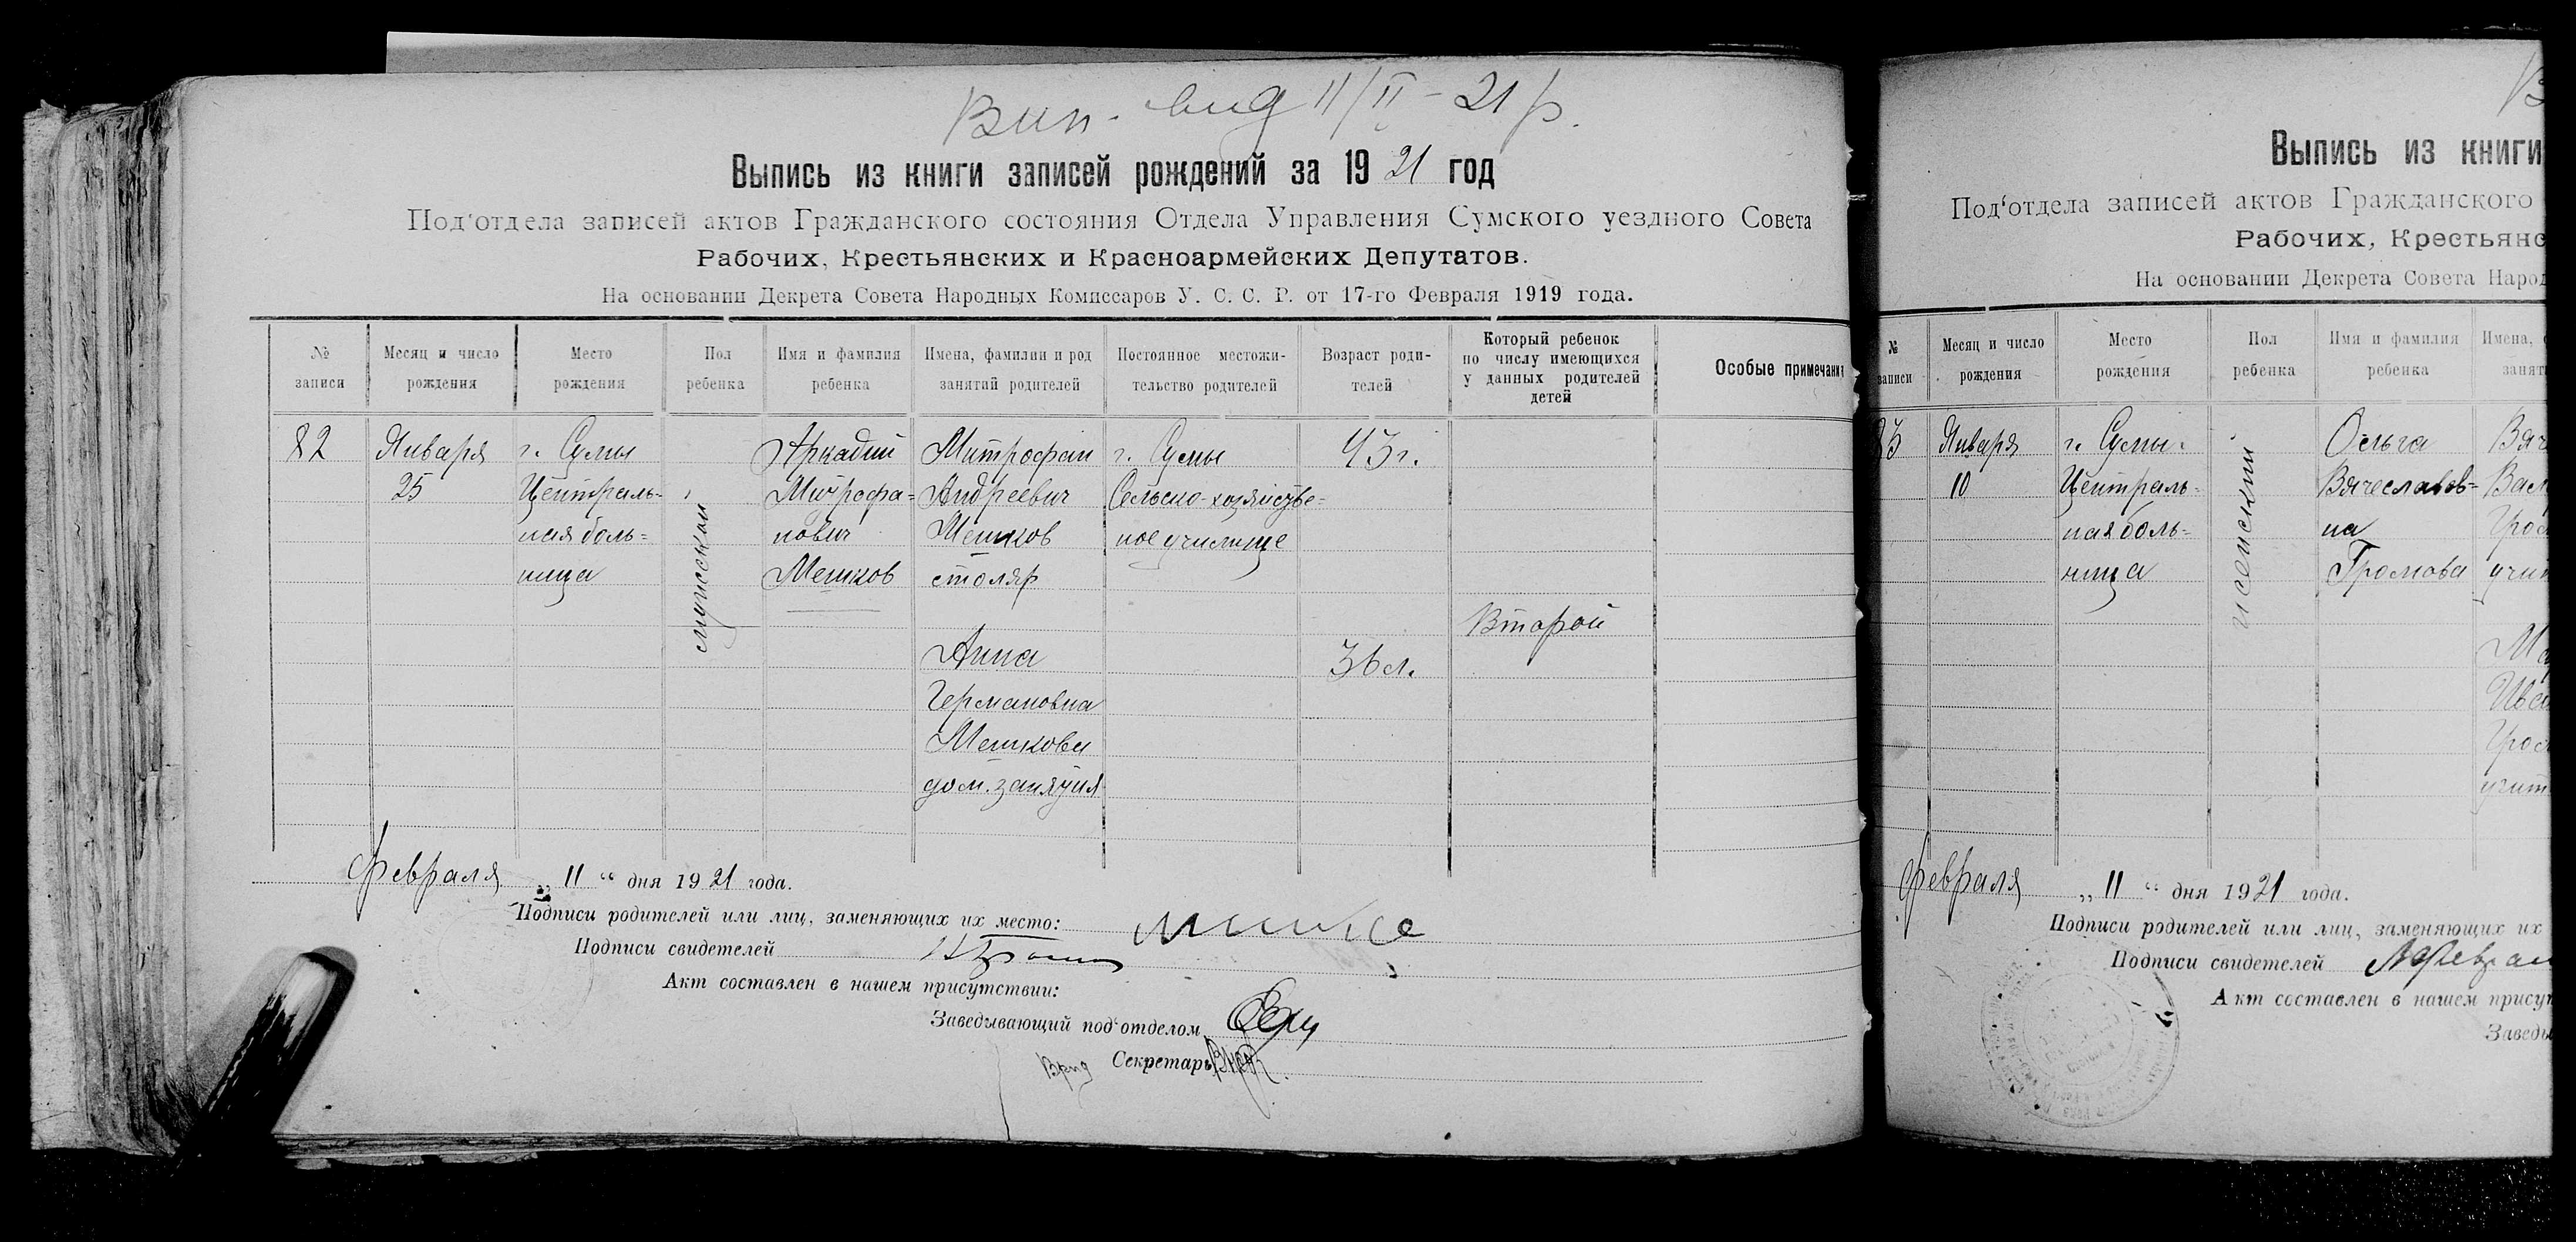 Вип. вид 11/II - 21 р.
Выпись из книги записей рождений за 1921 год
Под'отдела записей актов Гражданского состояния Отдела Управления Сумского уездного Совета
Рабочих, Крестьянских и Красноармейских Депутатов.
На основании Декрета Совета Народных Комиссаров У. С. С. Р. от 17-го Февраля 1919 года.
№ записи
Месяц и число рождения
Место рождения
Пол ребенка
Имя и фамилия ребенка
Имена, фамилии и род занятий родителей
Постоянное местожительство родителей
Возраст родителей
Который ребенок по числу имеющихся у данных родителей детей
Особые примечания
82
Января
25
г. Сумы
Централь-
ная боль-
ница
мужской
Аркадий
Митрофа-
нович
Мешков
Митрофан
Андреевич
Мешков
столяр
Анна
Германовна
Мешкова
дом. занятия
г. Сумы
Сельско-хозяйстве-
ное училище
43 г.
36 л.
Второй
Февраля „ 11 “ дня 1921 года.
Подписи родителей или лиц, заменяющих их место:
Подписи свидетелей
Акт составлен в нашем присутствии:
Заведывающий под'отделом
Врид Секретарь
Выпись из книги
Под'отдела записей актов Гражданского
Рабочих, Крестьянс
На основании Декрета Совета Народ
№ записи
Месяц и число рождения
Место рождения
Пол ребенка
Имя и фамилия ребенка
Имена,
занят
83
Января
10
г. Сумы
Централь-
ная боль-
ница
женский
Ольга
Вячеславов-
на
Громова
Вяч
Вас
Гром
учит
Ма
Ива
Гром
учит
Февраля „ 11 “ дня 1921 года.
Подписи родителей или лиц, заменяющих их
Подписи свидетелей
Акт составлен в нашем присут
Заведы